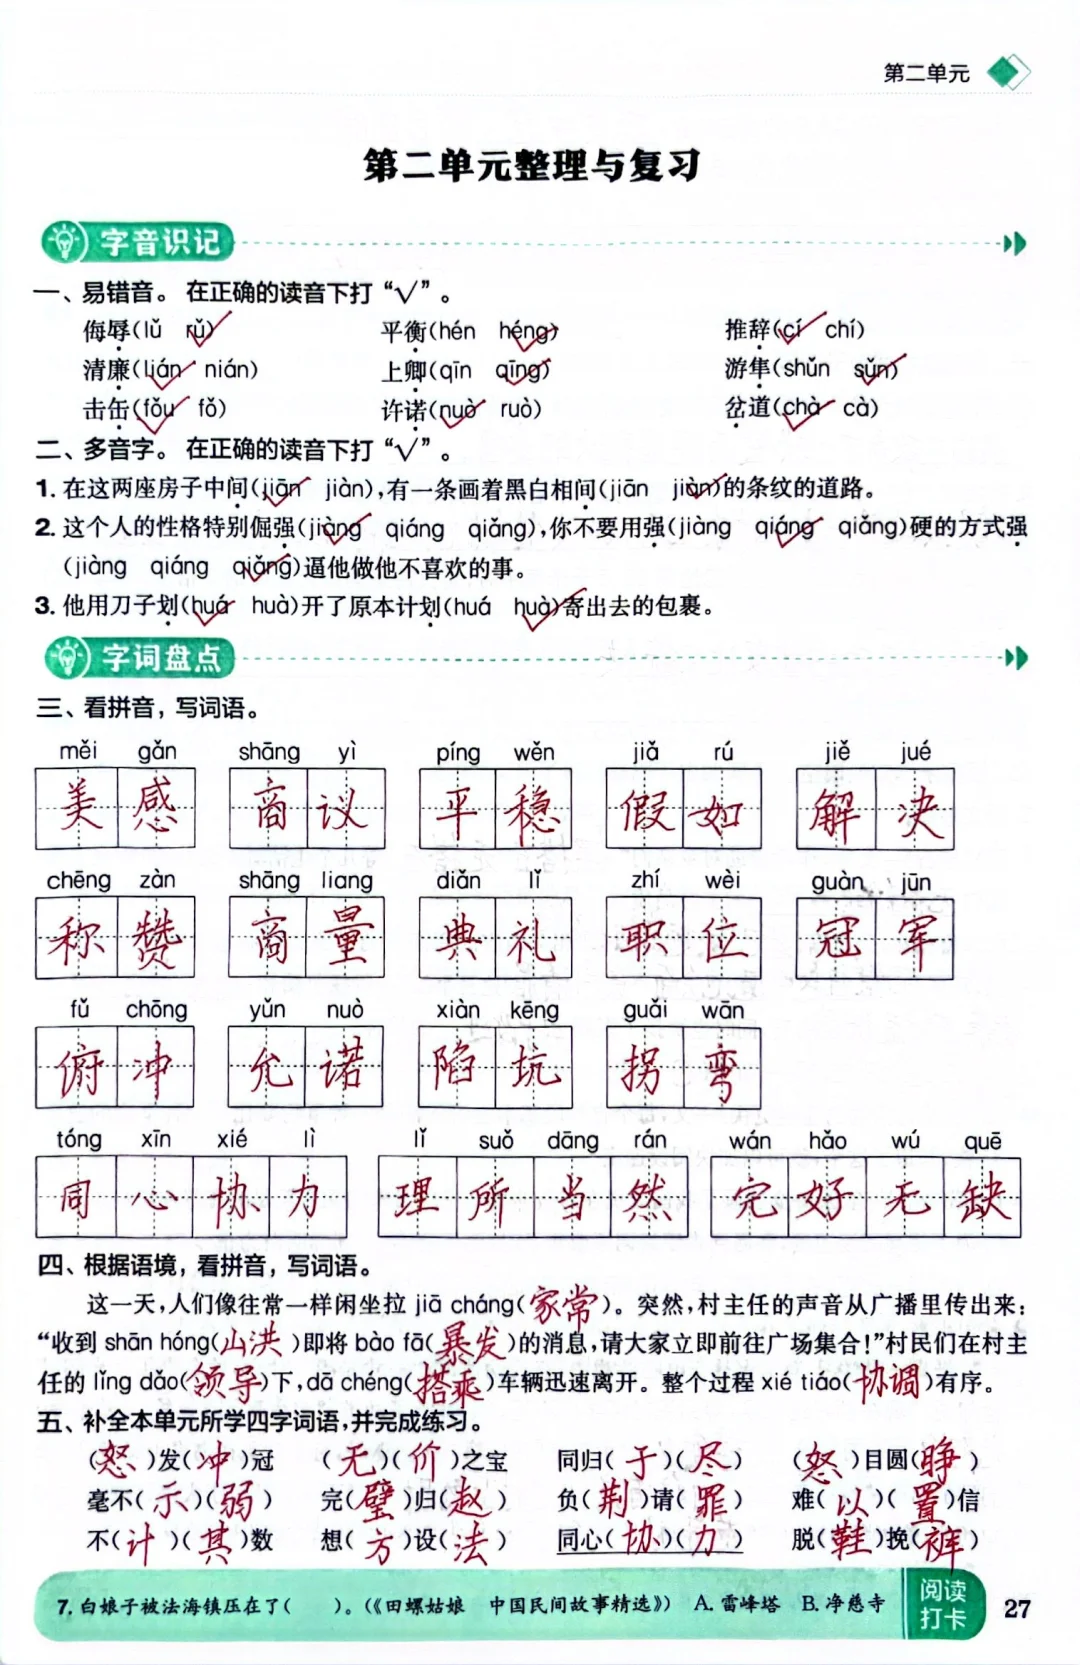 第二单元
第二单元整理与复习
字音识记
一、易错音。在正确的读音下打“√”。
侮辱(lǔ rǔ√) 平衡(hén héng√) 推辞(cí√ chí)
清廉(lián√ nián) 上卿(qīn qīng√) 游隼(shǔn sǔn√)
击缶(fǒu√ fǒ) 许诺(nuò√ ruò) 岔道(chà√ cà)
二、多音字。在正确的读音下打“√”。
1. 在这两座房子中间(jiān√ jiàn),有一条画着黑白相间(jiān jiàn√)的条纹的道路。
2. 这个人的性格特别倔强(jiàng√ qiáng qiǎng),你不要用强(jiàng qiáng√ qiǎng)硬的方式强
(jiàng qiáng qiǎng√)逼他做他不喜欢的事。
3. 他用刀子划(huá√ huà)开了原本计划(huá huà√)寄出去的包裹。
字词盘点
三、看拼音，写词语。
měi gǎn shāng yì píng wěn jiǎ rú jiě jué
美感 商议 平稳 假如 解决
chēng zàn shāng liang diǎn lǐ zhí wèi guàn jūn
称赞 商量 典礼 职位 冠军
fǔ chōng yǔn nuò xiàn kēng guǎi wān
俯冲 允诺 陷坑 拐弯
tóng xīn xié lì lǐ suǒ dāng rán wán hǎo wú quē
同心协力 理所当然 完好无缺
四、根据语境，看拼音，写词语。
这一天,人们像往常一样闲坐拉 jiā cháng(家常)。突然,村主任的声音从广播里传出来:
“收到 shān hóng(山洪)即将 bào fā(暴发)的消息,请大家立即前往广场集合!”村民们在村主
任的 lǐng dǎo(领导)下,dā chéng(搭乘)车辆迅速离开。整个过程 xié tiáo(协调)有序。
五、补全本单元所学四字词语,并完成练习。
(怒)发(冲)冠 (无)(价)之宝 同归(于)(尽) (怒)目圆(睁)
毫不(示)(弱) 完(璧)归(赵) 负(荆)请(罪) 难(以)(置)信
不(计)(其)数 想(方)设(法) 同心(协)(力) 脱(鞋)挽(裤)
7. 白娘子被法海镇压在了( )。(《田螺姑娘 中国民间故事精选》) A. 雷峰塔 B. 净慈寺
阅读
打卡
27